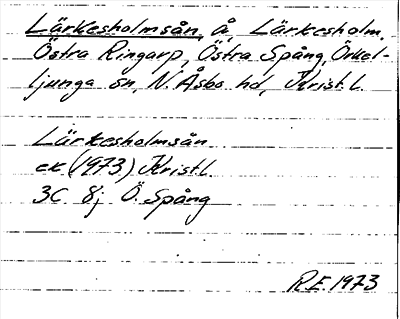 Lärkesholmsån, å, Lärkesholm,
Östra Ringarp, Östra Spång, Örkel-
ljunga sn, N. Åsbo hd, Krist. l.
Lärkesholmsån
ek (1973) Krist. l.
3C 8j Ö. Spång
R.E. 1973